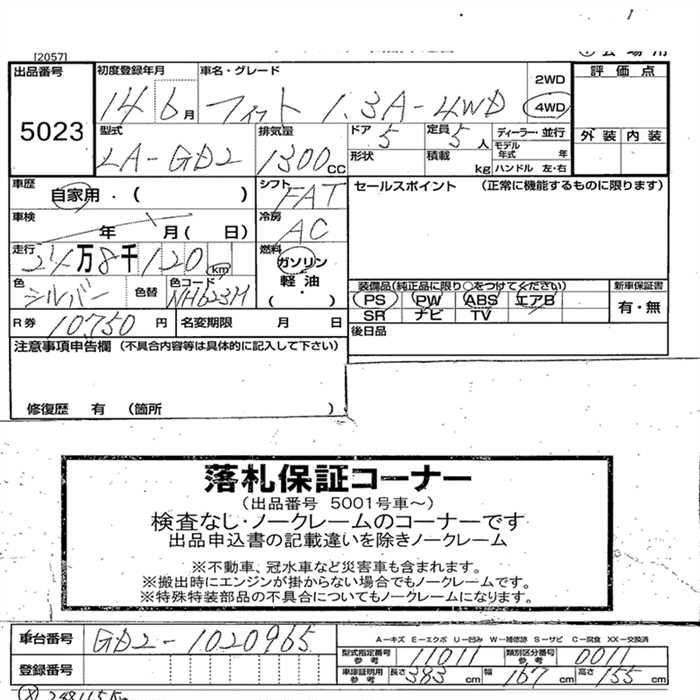 [2057]
出品番号 5023
初度登録年月 14年6月
車名・グレード フィット 1.3A-4WD
2WD
4WD
評価点
型式 LA-GD2
排気量 1300cc
ドア 5
定員 5人
ディーラー・並行
モデル年式 年
形状
積載 kg
ハンドル 左・右
外装 内装
車歴 自家用・( )
シフト FAT
セールスポイント (正常に機能するものに限ります)
車検 年 月( 日)
冷房 AC
走行 24万8千120km
燃料 ガソリン 軽油 ・( )
色 シルバー
色替
色コード NH623M
装備品(純正品に限り○をつけてください)
新車保証書
PS PW ABS エアB
有・無
SR ナビ TV
R券 10750円
名変期限 月 日
後日品
注意事項申告欄 (不具合内容等は具体的に記入して下さい)
修復歴 有 (箇所 )
落札保証コーナー
(出品番号 5001号車～)
検査なし・ノークレームのコーナーです
出品申込書の記載違いを除きノークレーム
※不動車、冠水車など災害車も含まれます。
※搬出時にエンジンが掛からない場合でもノークレームです。
※特殊特装部品の不具合についてもノークレームになります。
車台番号 GD2-1020965
A-キズ E-エクボ U-凹み W-補修跡 S-サビ C-腐食 XX-交換済
型式指定番号 参考 11011
類別区分番号 参考 0011
登録番号
車庫証明用 参考 長さ 383cm 幅 167cm 高さ 155cm